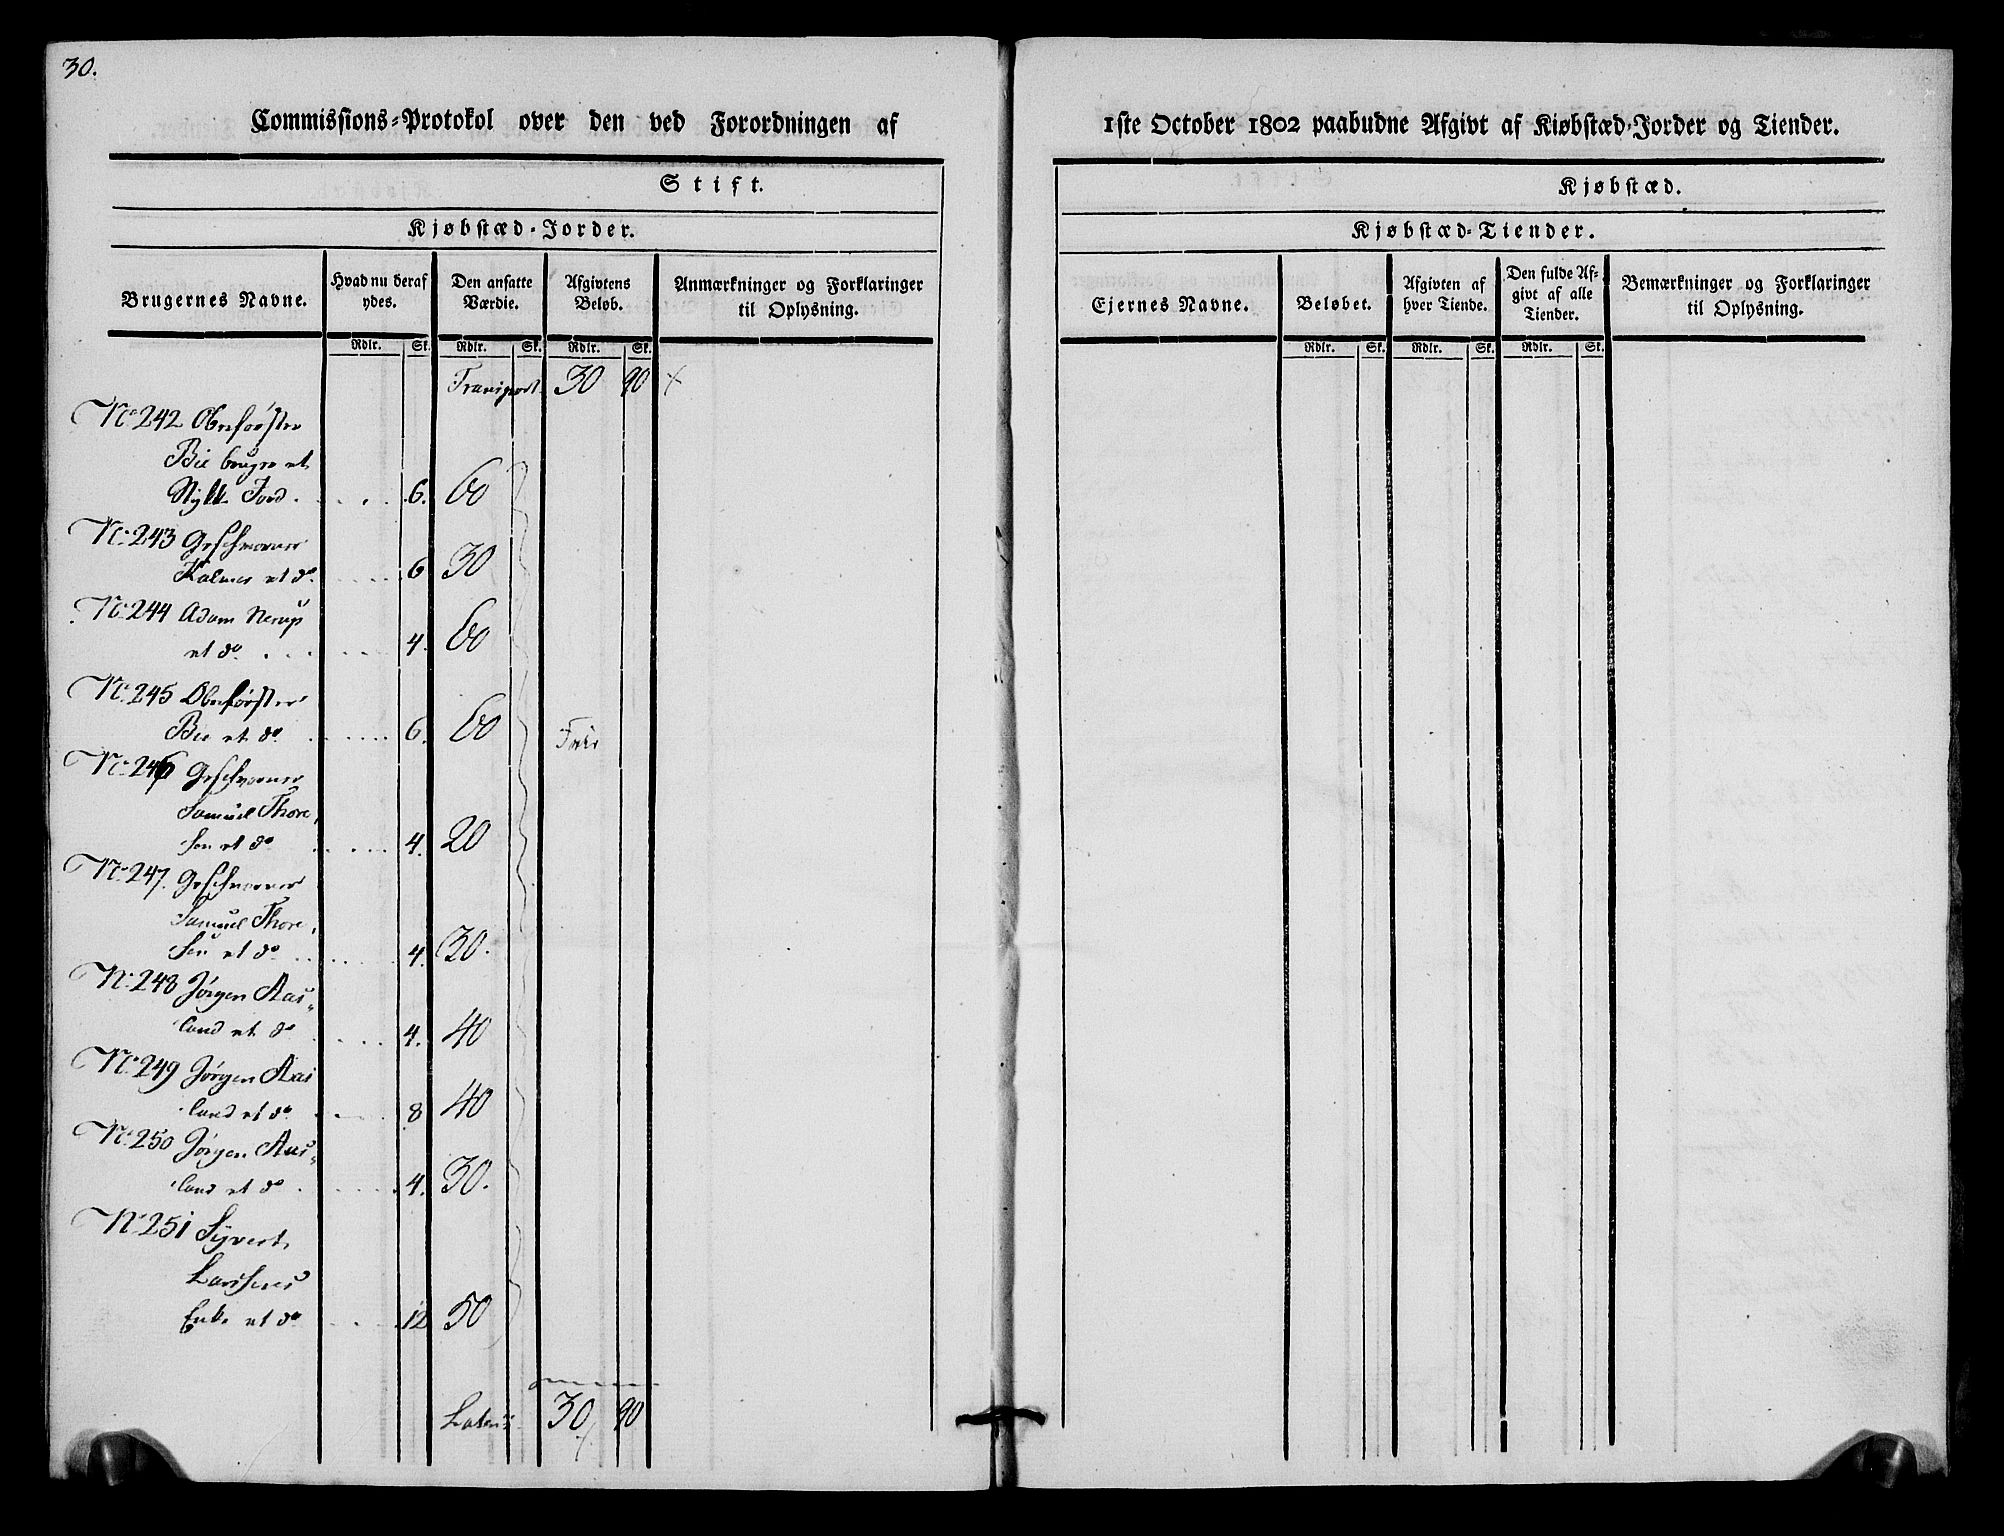 30.
Commissions-Protokol over den ved Forordningen af 1ste October 1802 paabudne Afgivt af Kiøbstæd-Jorder og Tiender.
Stift. Kjøbstæd.
Kjøbstæd-Jorder. Kjøbstæd-Tiender.
Brugernes Navne. Hvad nu deraf ydes. Den ansatte Værdie. Afgivtens Beløb. Anmærkninger og Forklaringer til Oplysning.
Ejernes Navne. Beløbet. Afgivten af hver Tiende. Den fulde Afgivt af alle Tiender. Bemærkninger og Forklaringer til Oplysning.
Rdlr. Sk. Rdlr. Sk. Rdlr. Sk. Rdlr. Sk. Rdlr. Sk. Rdlr. Sk.
Transport 30 90 ×
No 242 Oberførster
Bie bruger et
Stykke Jord . . . . 6. 60
No 243 Geschworner
Kalmer et do . . . . 6 30
No 244 Adam Nerup
et do . . . . 4. 60
No 245 Oberførster
Bie et do . . . . 6. 60 Frie
No 246 Geschworner
Samuel Thore,
sen et do . . . . 4. 20
No 247. Geschworner
Samuel Thore,
sen et do . . . . 4. 30.
No 248 Jørgen Aas„
land et do . . . . 4. 40
No 249 Jørgen Aas
land et do . . . . 8 40
No 250 Jørgen Aas„
land et do . . . . 4. 30.
No 251 Syvert
Larsens
Enke et do . . . . 12 50
Latus 30 90